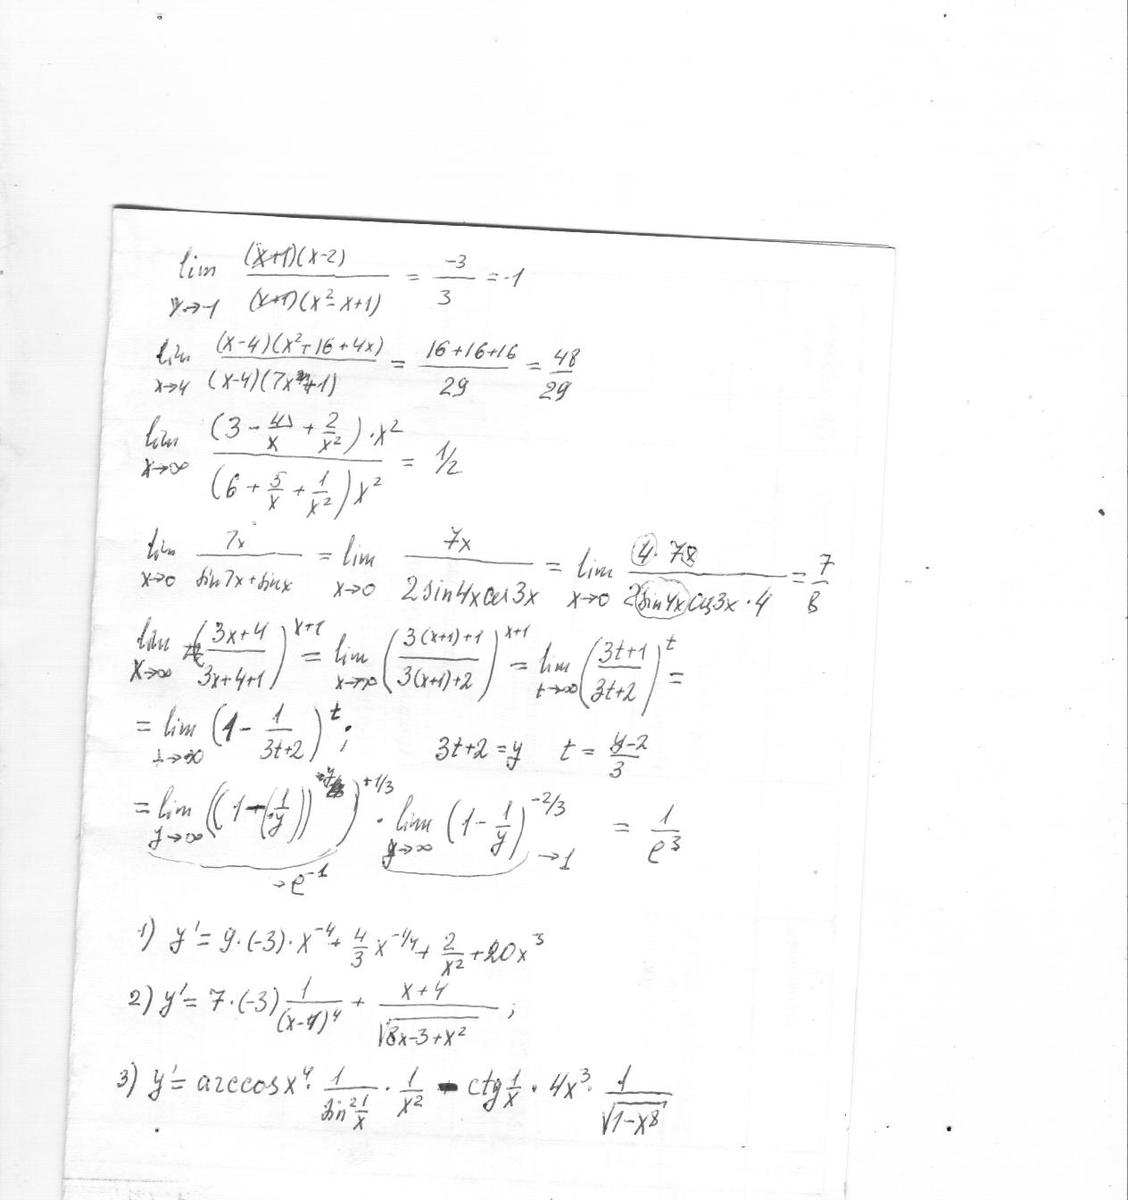 lim x→-1 (x+1)(x-2) / (x+1)(x²-x+1) = -3/3 = -1
lim x→4 (x-4)(x²+16+4x) / (x-4)(7x+1) = 16+16+16 / 29 = 48/29
lim x→∞ (3 - 4/x + 2/x²)·x² / (6 + 5/x + 1/x²)x² = 1/2
lim x→0 7x / sin7x+sinx = lim x→0 7x / 2sin4xcos3x = lim x→0 4·7x / 2sin4xcos3x·4 = 7/8
lim x→∞ (3x+4 / 3x+4+1)^x+1 = lim x→∞ (3(x+1)+1 / 3(x+1)+2)^x+1 = lim t→∞ (3t+1 / 3t+2)^t =
= lim t→∞ (1 - 1/3t+2)^t ; 3t+2=y t = y-2/3
= lim y→∞ ((1-(1/y))^y)^+1/3 · lim y→∞ (1 - 1/y)^-2/3 = 1/e³
→e^-1 →1
1) y' = 9·(-3)·x^-4 + 4/3 x^-1/4 + 2/x² + 20x³
2) y' = 7·(-3) 1/(x-4)^4 + x+4/√8x-3+x² ;
3) y' = arccosx⁴· 1/sin² 1/x · 1/x² - ctg 1/x · 4x³· 1/√1-x⁸